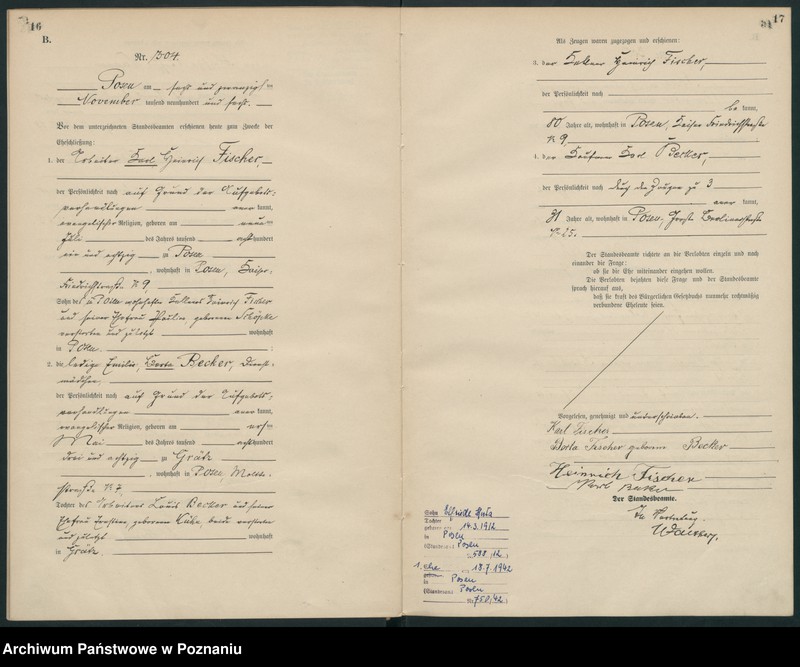 16
B.
Nr. 1304.
Posen am sechs und zwanzigsten
November tausend neunhundert und sechs.
Vor dem unterzeichneten Standesbeamten erschienen heute zum Zwecke der
Eheschließung:
1. der Arbeiter Karl Heinrich Fischer,
der Persönlichkeit nach auf Grund der Aufgebots-
verhandlungen anerkannt,
evangelischer Religion, geboren am
des Jahres tausend achthundert
und achtzig zu Posen
, wohnhaft in Posen, Kaiser-
Friedrichstraße N 9,
Sohn des in Posen wohnhaften Heinrich Fischer
und seiner Ehefrau Pauline, geborenen
verstorben und zuletzt wohnhaft
in Posen.
2. die ledige Emilie, Berta Becker, Dienst-
mädchen,
der Persönlichkeit nach auf Grund der Aufgebots-
verhandlungen anerkannt,
evangelischer Religion, geboren am
Mai des Jahres tausend achthundert
drei und achtzig zu Grätz
, wohnhaft in Posen,
straße N 7,
Tochter des Arbeiters Louis Becker und seiner
Ehefrau geborenen beide verstorben
und zuletzt wohnhaft
in Grätz.
17
Als Zeugen waren zugezogen und erschienen:
3. der Heinrich Fischer,
der Persönlichkeit nach
bekannt,
60 Jahre alt, wohnhaft in Posen, Kaiser Friedrichstraße
N 9,
4. der Karl Becker,
der Persönlichkeit nach durch den Zeugen zu 3
anerkannt,
31 Jahre alt, wohnhaft in Posen,
N 25.
Der Standesbeamte richtete an die Verlobten einzeln und nach
einander die Frage:
ob sie die Ehe miteinander eingehen wollen.
Die Verlobten bejahten diese Frage und der Standesbeamte
sprach hierauf aus,
daß sie kraft des Bürgerlichen Gesetzbuchs nunmehr rechtmäßig
verbundene Eheleute seien.
Vorgelesen, genehmigt und unterschrieben.
Karl Fischer
Berta Fischer geborene Becker
Heinrich Fischer
Karl Becker
Der Standesbeamte.
In Vertretung.
Tochter Elfriede
geboren am 14.3.1912
in Posen
(Standesamt Posen
Nr. 588/12)
1. Ehe am 18.7.1942
in Posen
(Standesamt Posen
Nr. 750/42)
Archiwum Państwowe w Poznaniu